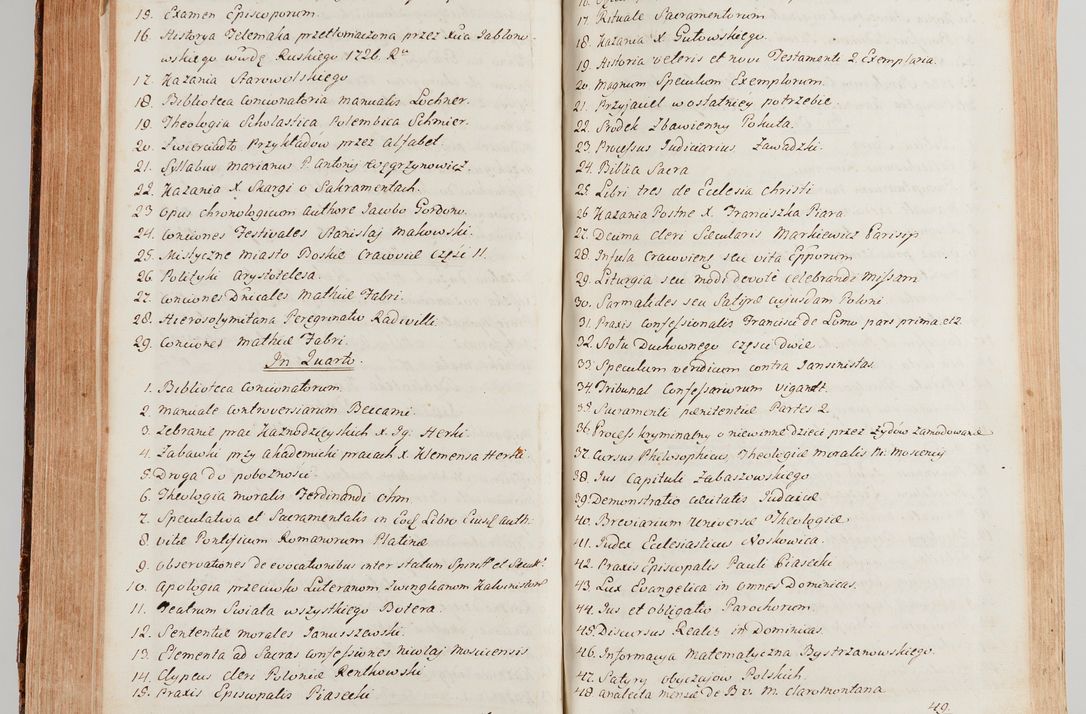 15. Examen Episcoporum.
16. Historya Telemaka przetłomaczona przez Xcia Jabłono-
wskiego wwdę Ruskiego 1726. R
17. Kazania Starowolskiego
18. Biblioteca Concionatoria manualis Lochner.
19. Theologia Scholastica Polembica Schmier.
20. Zwierciadło Przykładów przez alfabet.
21. Syllabus marianus P. Antonij Węgrzynowicz.
22. Kazania X. Skargi o Sakramentach.
23 Opus chronologicum Authore Jacobo Gordono.
24. Conciones Festivales Stanislaj Makowski.
25. Mistyczne miasto Boskie Cracoviæ część II.
26. Polityki Arystotelesa.
27. Conciones Dnicales Mathiæ Fabri.
28. Hierosolymitana Peregrinatio Radivilli.
29. Conciones Mathiæ Fabri.
In Quarto.
1. Biblioteca Concionatorum
2. Manuale Controversiarum Beccami.
3. Zebranie prac Kaznodzieyskich x. Ig. Herki.
4. Zabawki przy Akademicki pracach X Klemensa Herki.
5. Droga do pobożnosci.
6. Theologia moralis Ferdinandi ohm.
7. Speculativa et Sacramentalis in Eod Libro Eiusd Auth.
8. Vitæ Pontificum Romanorum Platinæ
9. Observationes de evocationibus inter statum Spirit et Sæcul.
10. Apologia przeciwko Luteranom Zwinglianom Kalwinistom
11. Teatrum Swiata wszystkiego Botera.
12. Sententiæ morales Janusszewski.
13. Elementa ad Sacras confessiones Nicolaj Moscicensis
14. Clypeus Cleri Poloniæ Rentkowski
15. Praxis Episcopalis Piasecki
17. Rituale Sacramentorum
18. Kazania X Gutowskiego.
19. Historia veteris et novi Testamenti 2 Exemplaria.
20. Magnum Speculum Exemplorum.
21. Przyjaciel w ostatniey potrzebie.
22. Srodek Zbawienny Pokuta.
23. Processus Judiciarius Zawadzki.
24. Biblia Sacra
25. Libri tres de Ecclesia Christi
26 Kazania Postne X. Franciszka Rara
27. Decima Cleri Sæcularis Markiewicz Parisip
28. Infula Cracoviens seu vita Epporum
29. Liturgia seu modi devote celebrandi Missam
30. Sarmatides seu Satyræ cujusdam Poloni
31. Praxis confessionalis Francisci de Lomo pars prima et 2.
32. Stotu Duchownego częsci dwie
33 Speculum veridicum contra Jansinistas
34 Tribunal Confessariorum vigandt.
35 Sacramenti pænitentiæ Partes 2.
36 Process kryminalny o niewinne dzieci przez Zydów zamodowane
37 Cursus Philosophicus Theologiæ moralis N. Moscenij
38. Jus Capituli Zabaszowskiego
39 Demonstratio cæcitatis Judaicæ
40. Breviarium Universæ Theologiæ.
41. Judex Ecclesiasticus Noskowica.
42. Praxis Episcopalis Pauli Piasecki
43. Lux Evangelica in omnes Dominicas.
44. Jus et obligatio Parochorum
45. Discursus Reales in Dominicas.
46. Informacya Matematyczna Bystrzanowskiego
47. Satyry obyczajow Polskich.
48 Analecta mensæ de B v. M. Claromontana
49.